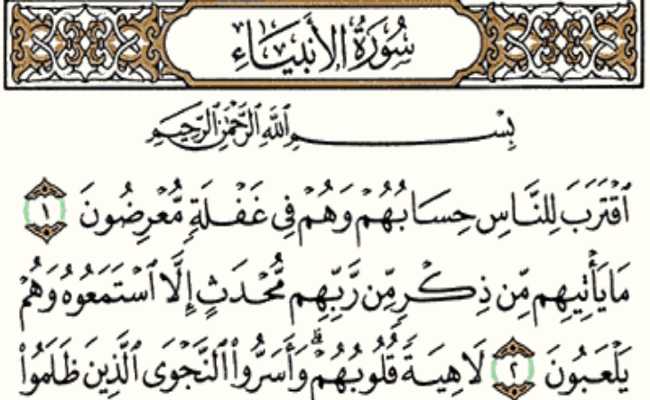 سُورَةُ الأَنبِيَاءِ
بِسْمِ اللَّهِ الرَّحْمَٰنِ الرَّحِيمِ
ٱقْتَرَبَ لِلنَّاسِ حِسَابُهُمْ وَهُمْ فِى غَفْلَةٍ مُّعْرِضُونَ ١
مَا يَأْتِيهِم مِّن ذِكْرٍ مِّن رَّبِّهِم مُّحْدَثٍ إِلَّا ٱسْتَمَعُوهُ وَهُمْ
يَلْعَبُونَ ٢ لَاهِيَةً قُلُوبُهُمْ ۗ وَأَسَرُّوا۟ ٱلنَّجْوَى ٱلَّذِينَ ظَلَمُوا۟